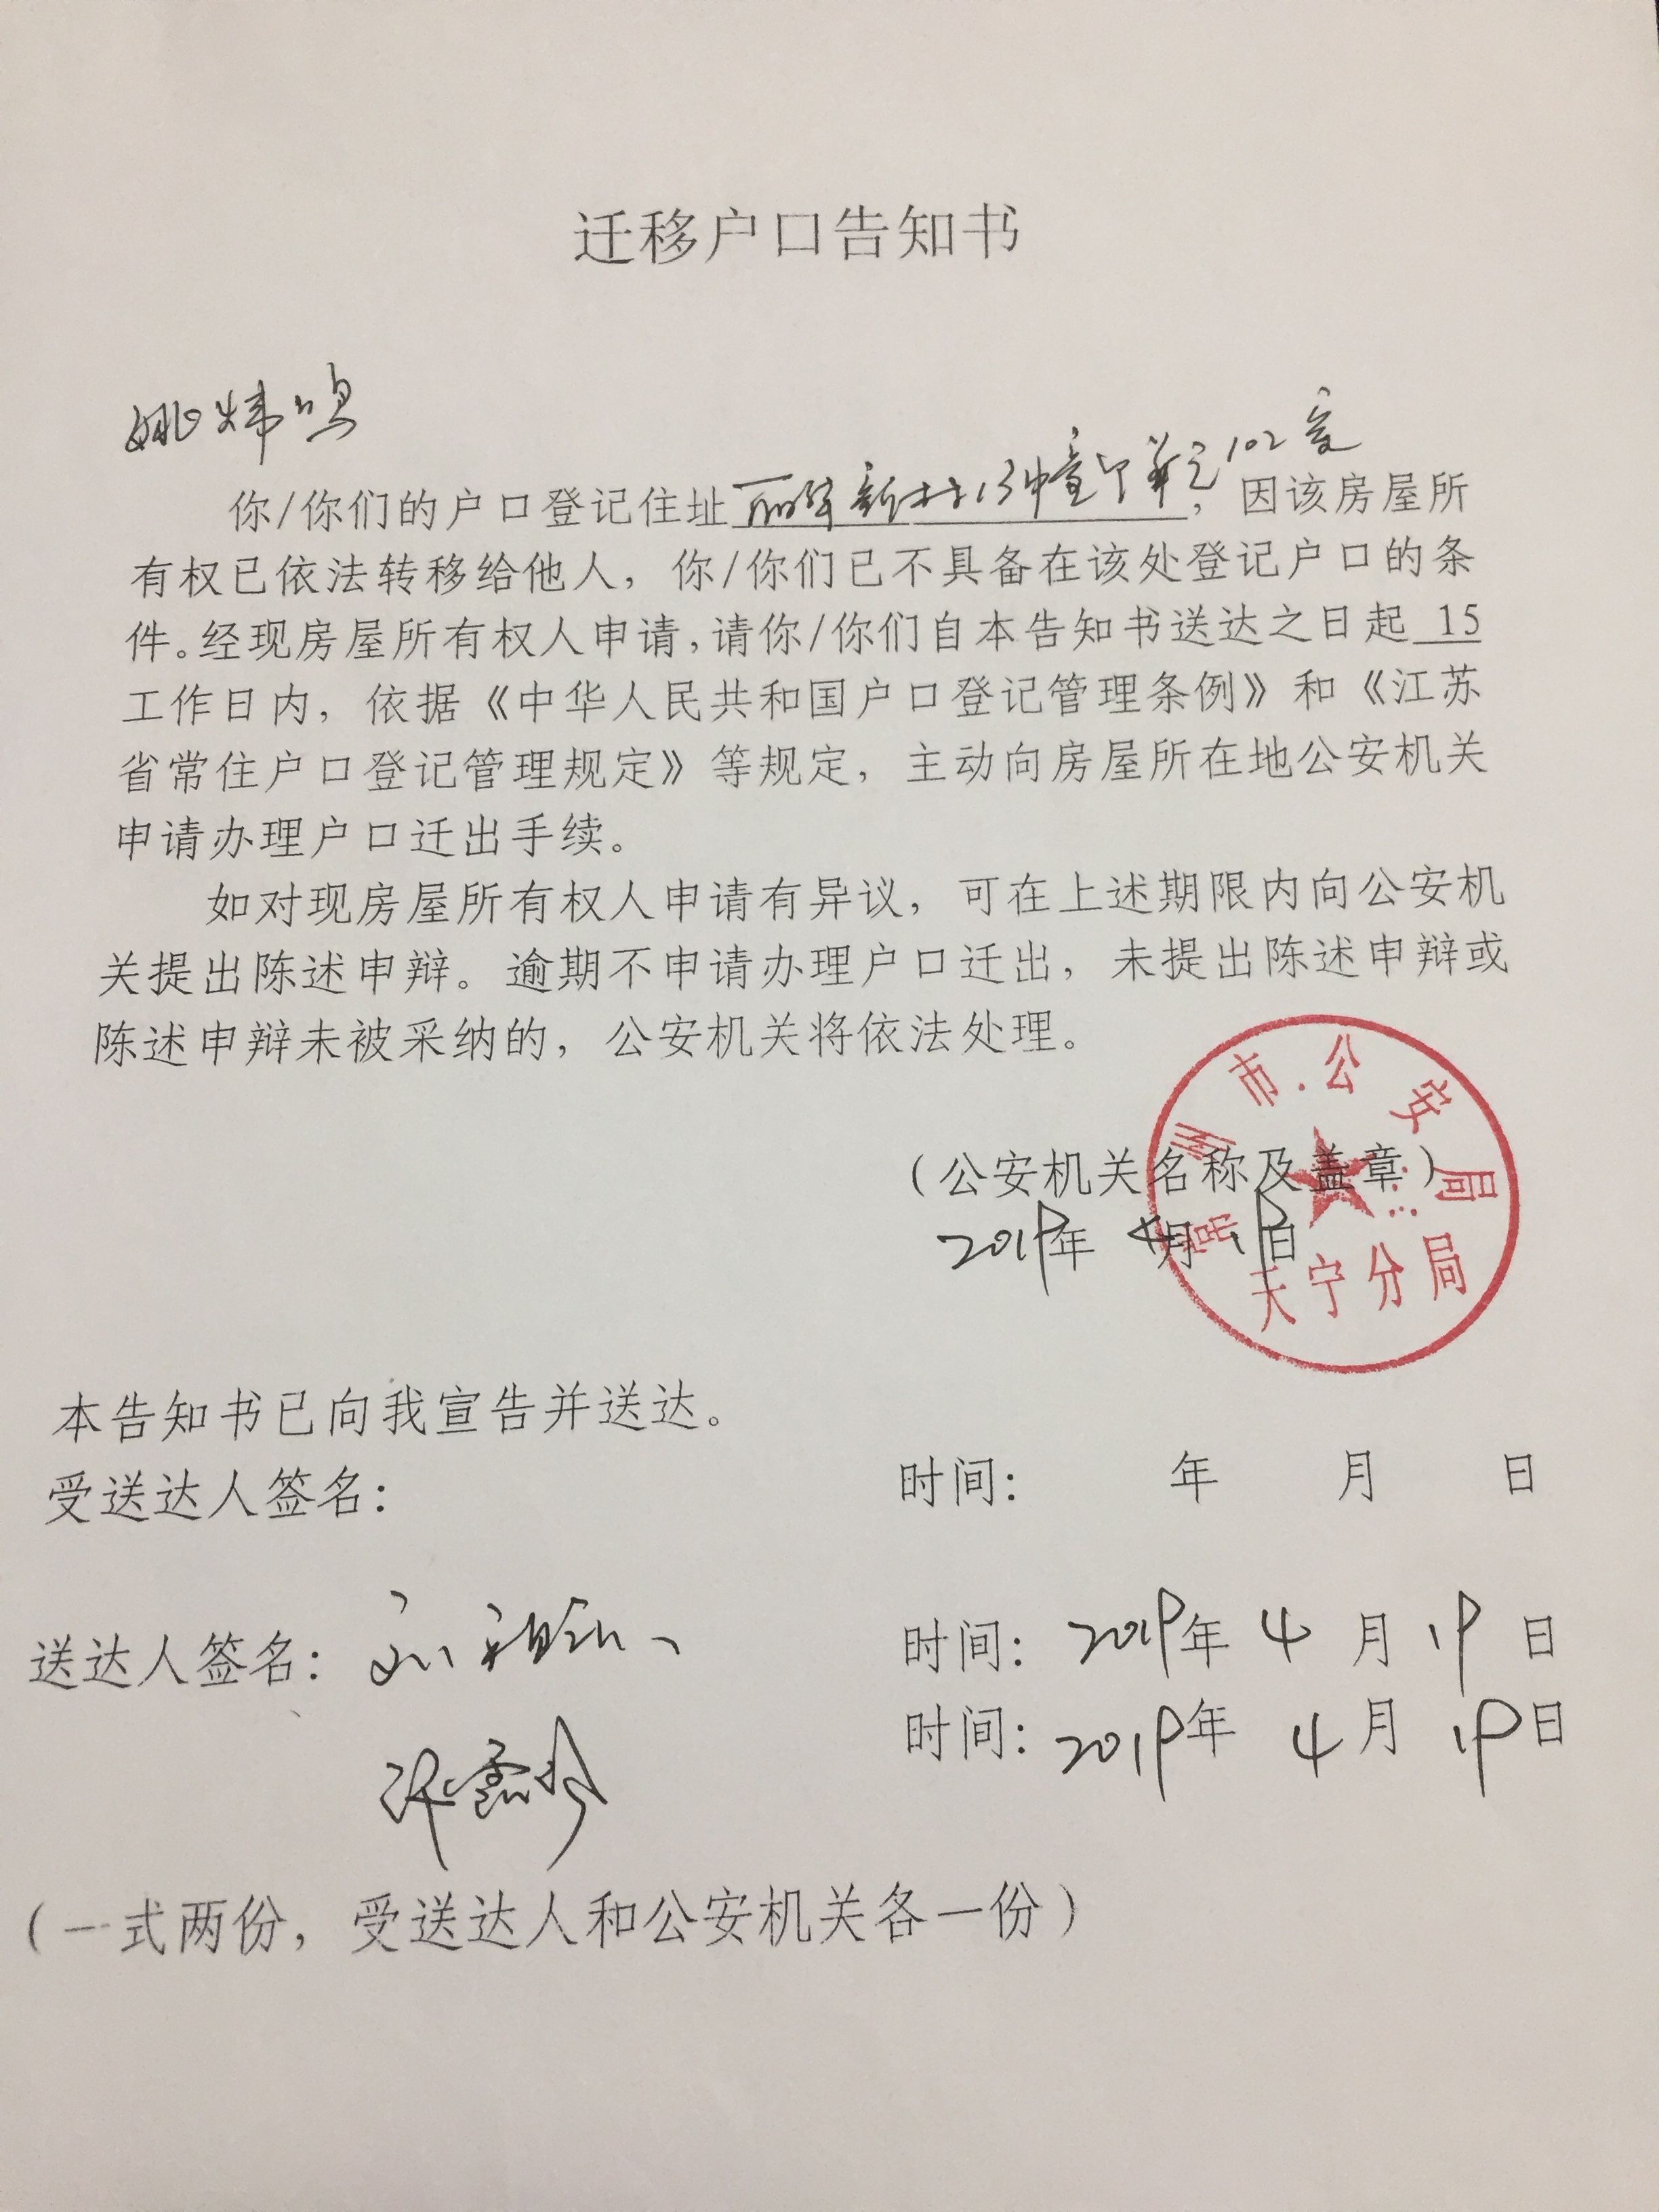 迁移户口告知书
姚炜鸣
你/你们的户口登记住址丽华新村13幢 单元102室，因该房屋所
有权已依法转移给他人，你/你们已不具备在该处登记户口的条
件。经现房屋所有权人申请，请你/你们自本告知书送达之日起 15
工作日内，依据《中华人民共和国户口登记管理条例》和《江苏
省常住户口登记管理规定》等规定，主动向房屋所在地公安机关
申请办理户口迁出手续。
如对现房屋所有权人申请有异议，可在上述期限内向公安机
关提出陈述申辩。逾期不申请办理户口迁出，未提出陈述申辩或
陈述申辩未被采纳的，公安机关将依法处理。
（公安机关名称及盖章）
2019年 4月 19日
常州市公安局
天宁分局
本告知书已向我宣告并送达。
受送达人签名： 时间： 年 月 日
送达人签名： 时间：2019年 4 月 19 日
时间：2019年 4 月 19日
（一式两份，受送达人和公安机关各一份）